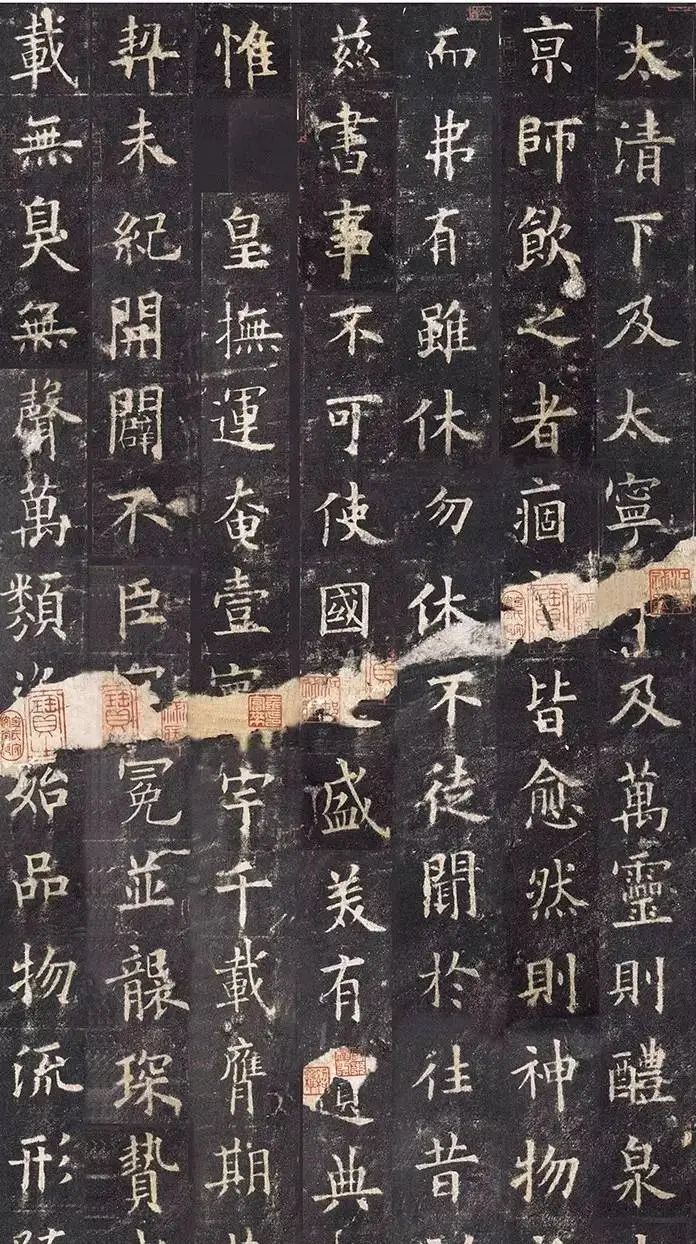 太清下及太寧及萬靈則醴泉
京師飲之者痼皆愈然則神物
而弗有雖休勿休不徒聞於往昔
茲書事不可使國盛美有典
惟 皇撫運奄壹宇千載膺期
契未紀開闢不臣冕並襲琛贄
載無臭無聲萬類始品物流形